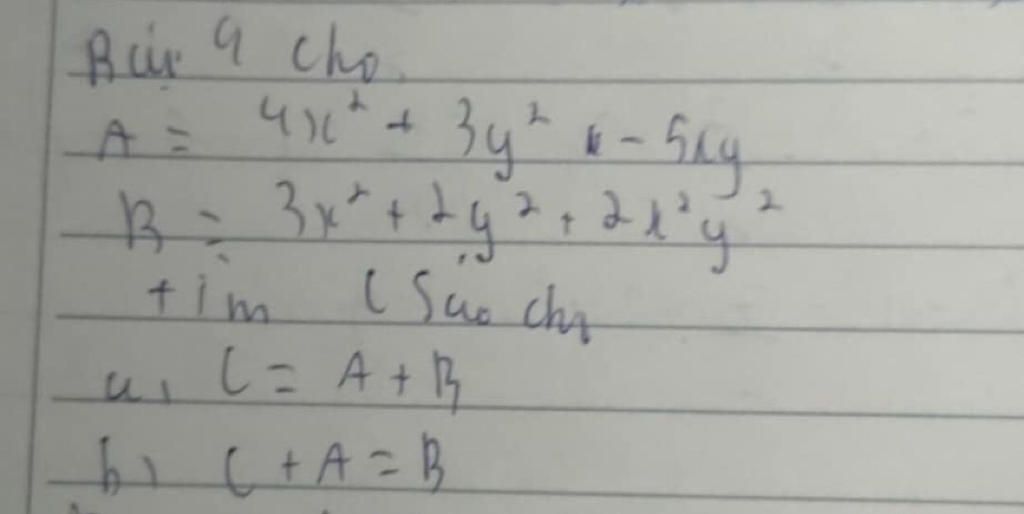 Bài 4 Cho
A = 4x² + 3y² - 5xy
B = 3x² + 2y² + 2x²y²
tìm C Sao cho
a, C = A + B
b) C + A = B